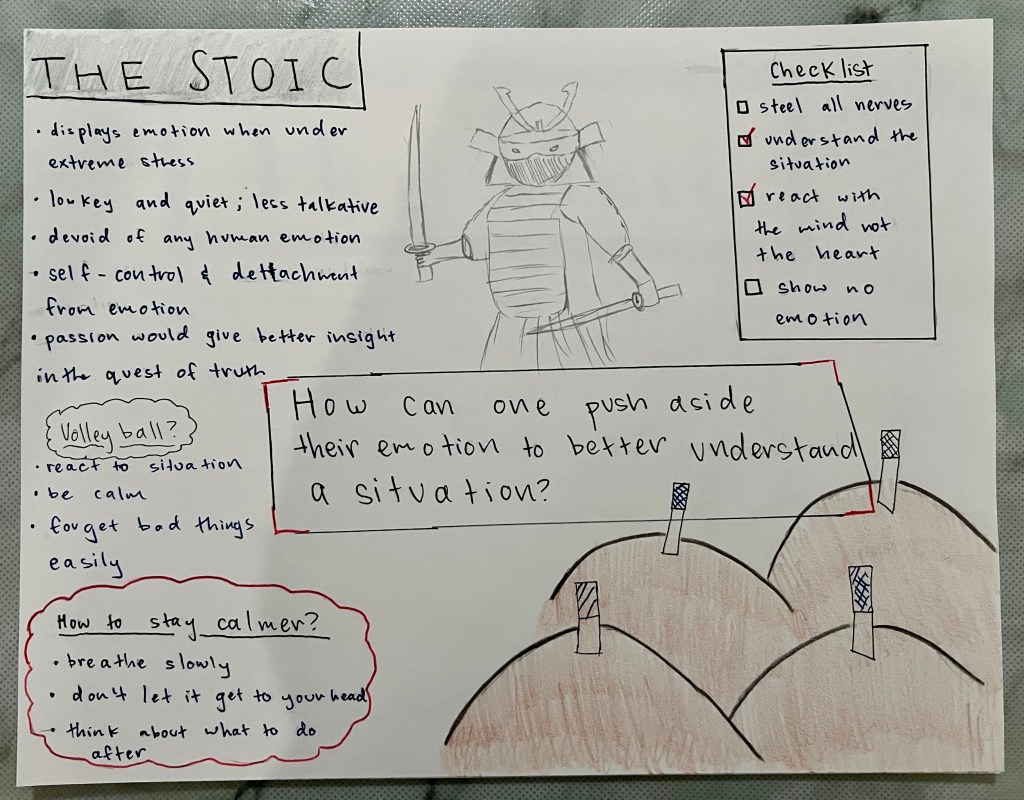 THE STOIC
• displays emotion when under
extreme stress
• lowkey and quiet; less talkative
• devoid of any human emotion
• self-control & dettachment
from emotion
• passion would give better insight
in the quest of truth
Volleyball?
• react to situation
• be calm
• forget bad things
easily
How to stay calmer?
• breathe slowly
• don't let it get to your head
• think about what to do
after
How can one push aside
their emotion to better understand
a situation?
Checklist
☐ steel all nerves
☑ understand the
situation
☑ react with
the mind not
the heart
☐ show no
emotion